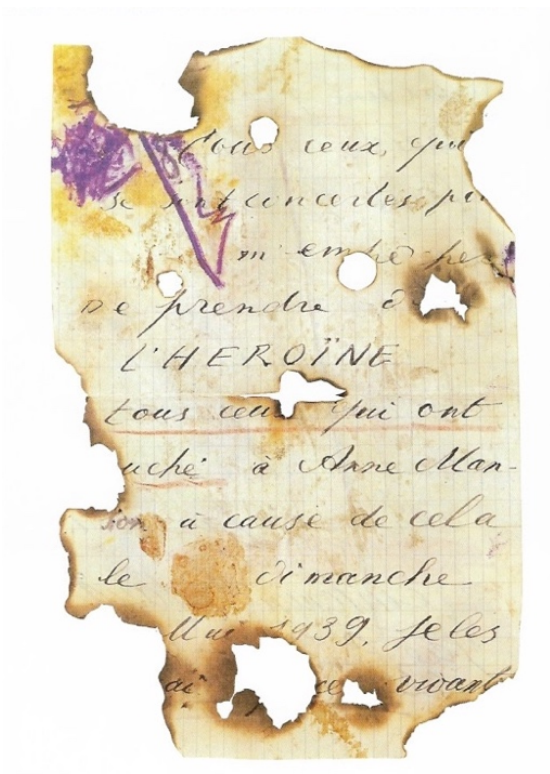 Tous ceux, qui
se sont concertés po
m'empêche
De prendre d
L'HEROÏNE
tous ceux qui ont
uché à Anne Man-
sion à cause de cela
le dimanche
Mai 1939, je les
ai vivant